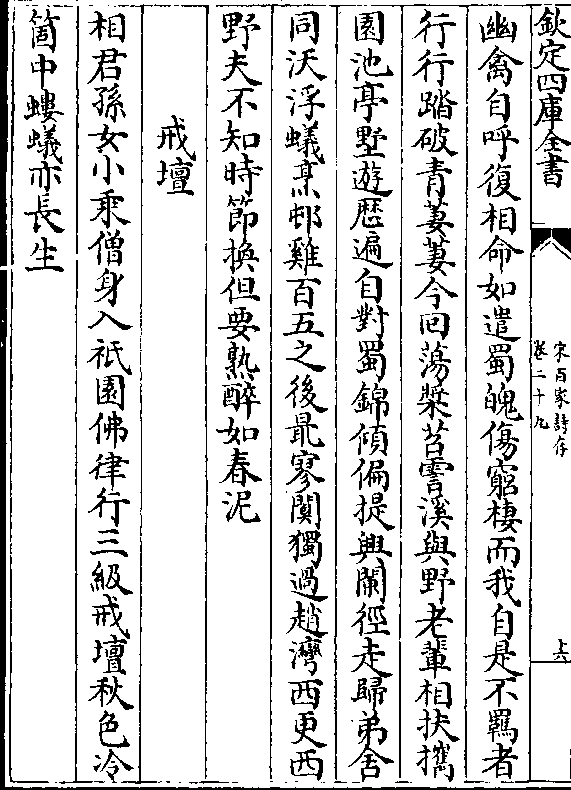 欽定四庫全書
宋百家詩存
卷二十九
幽禽自呼復相命如遣蜀魄傷窮棲而我自是不羈者
行行踏破青萋萋今回蕩槳苕霅溪與野老輩相扶攜
園池亭墅遊歷遍自對蜀錦傾偏提興闌徑走歸弟舍
同沃浮蟻烹邨雞百五之後最寥闃獨過趙灣西更西
野夫不知時節換但要熟醉如春泥
戒壇
相君孫女小乘僧身入祇園佛律行三級戒壇秋色冷
箇中螻蟻亦長生